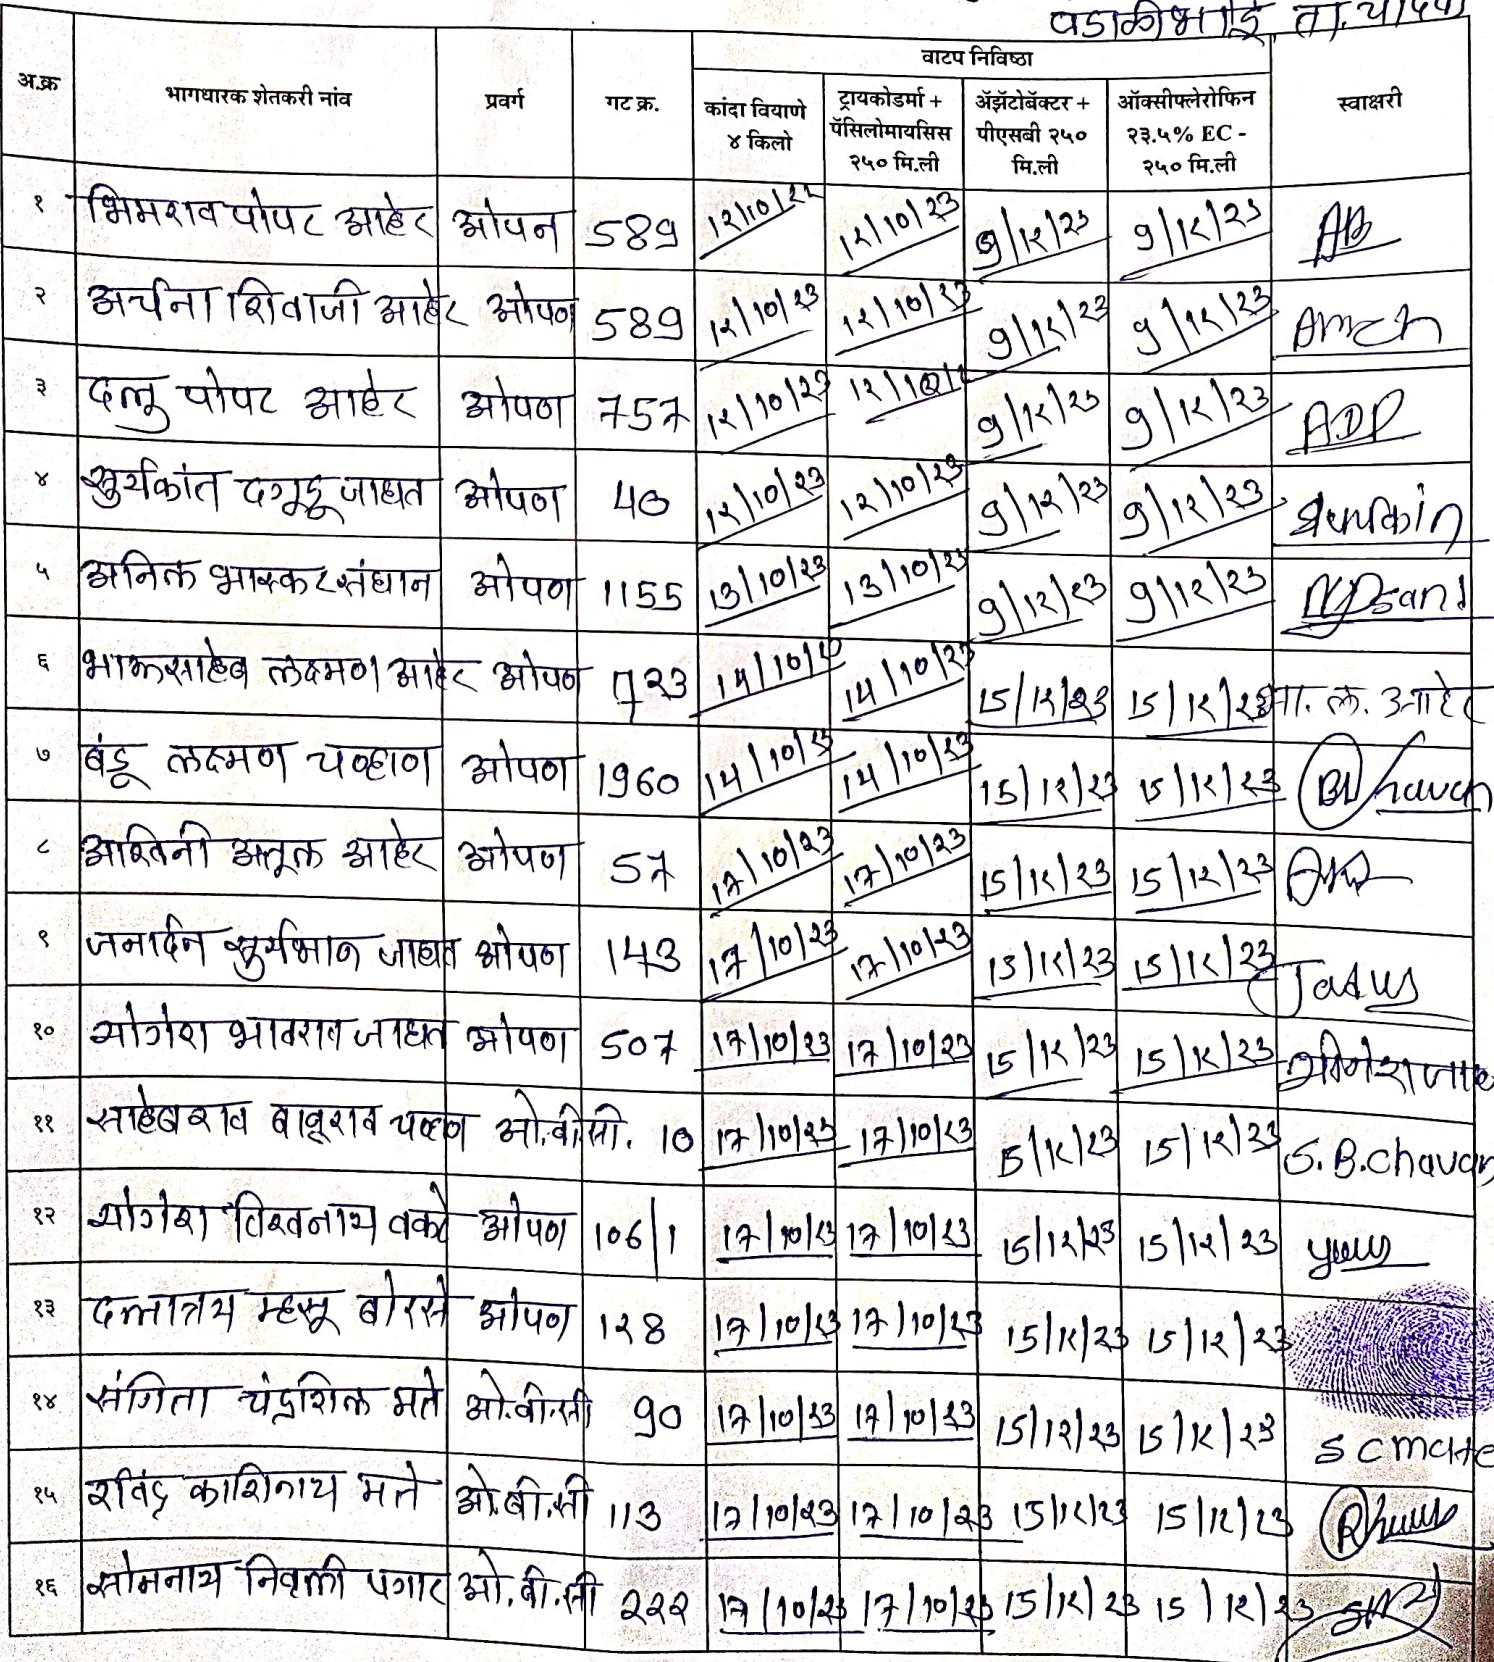 वडाळीभोई ता. चांदवड
वाटप निविष्ठा
अ.क्र भागधारक शेतकरी नांव प्रवर्ग गट क्र. कांदा बियाणे ४ किलो ट्रायकोडर्मा + पॅसिलोमायसिस २५० मि.ली ॲझॅटोबॅक्टर + पीएसबी २५० मि.ली ऑक्सीफ्लेरोफिन २३.५% EC - २५० मि.ली स्वाक्षरी
१ भिमराव पोपट आहेर ओपन 589 12/10/23 12/10/23 9/12/23 9/12/23 AB
२ अर्चना शिवाजी आहेर ओपण 589 12/10/23 12/10/23 9/12/23 9/12/23
३ दत्तु पोपट आहेर ओपण 757 12/10/23 12/10/2 9/12/23 9/12/23 ADP
४ सुर्यकांत दगूडू जाधव ओपण 40 12/10/23 12/10/23 9/12/23 9/12/23
५ अनिल भास्कर संधान ओपण 1155 13/10/23 13/10/23 9/12/23 9/12/23
६ भाऊसाहेब लक्ष्मण आहेर ओपण 723 14/10/23 14/10/23 15/12/23 15/12/23 भा. ल. आहेर
७ बंडू लक्ष्मण चव्हाण ओपण 1960 14/10/23 14/10/23 15/12/23 15/12/23 BLChavan
८ अश्विनी अतूल आहेर ओपण 57 17/10/23 17/10/23 15/12/23 15/12/23
९ जनार्दन सुर्यभान जाधव ओपण 143 17/10/23 17/10/23 15/12/23 15/12/23
१० योगेश भावराव जाधव ओपण 507 17/10/23 17/10/23 15/12/23 15/12/23
११ साहेबराव बाबूराव चव्हाण ओ.बी.सी. 10 17/10/23 17/10/23 15/12/23 15/12/23 S.B.Chavan
१२ योगेश विश्वनाथ वक्टे ओपण 106/1 17/10/23 17/10/23 15/12/23 15/12/23
१३ दत्तात्रय म्हसू बोरसे ओपण 128 17/10/23 17/10/23 15/12/23 15/12/23
१४ संगिता चंद्रशिल मते ओ.बी.सी 90 17/10/23 17/10/23 15/12/23 15/12/23 S C Mate
१५ रविंद्र काशिनाथ मते ओ.बी.सी 113 17/10/23 17/10/23 15/12/23 15/12/23
१६ सोमनाथ निवृत्ती पगार ओ.बी.सी 222 17/10/23 17/10/23 15/12/23 15/12/23